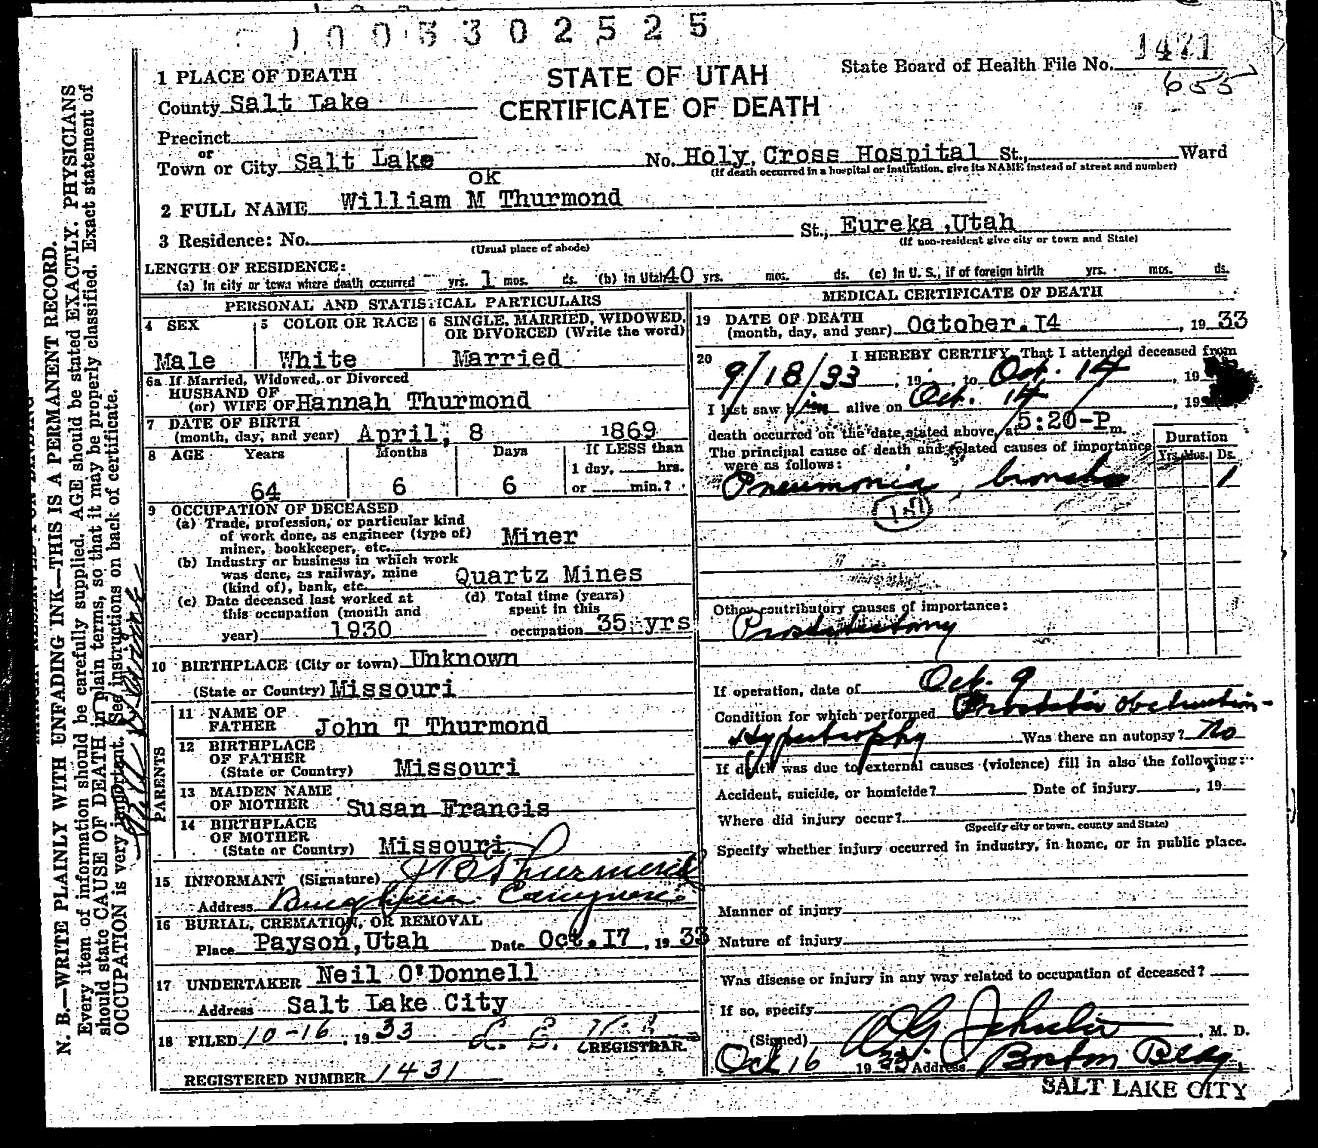 1005302525
STATE OF UTAH
CERTIFICATE OF DEATH
State Board of Health File No. 1471
655
1 PLACE OF DEATH
County Salt Lake
Precinct
or
Town or City Salt Lake No. Holy Cross Hospital St., Ward
(If death occurred in a hospital or institution, give its NAME instead of street and number)
OK
2 FULL NAME William M Thurmond
3 Residence: No. St., Eureka ,Utah
(Usual place of abode) (If non-resident give city or town and State)
LENGTH OF RESIDENCE:
(a) In city or town where death occurred yrs. 1 mos. ds. (b) In Utah 40 yrs. mos. ds. (c) In U. S., if of foreign birth yrs. mos. ds.
PERSONAL AND STATISTICAL PARTICULARS
4 SEX
Male
5 COLOR OR RACE
White
6 SINGLE, MARRIED, WIDOWED, OR DIVORCED (Write the word)
Married
6a If Married, Widowed, or Divorced
HUSBAND OF
(or) WIFE OF Hannah Thurmond
7 DATE OF BIRTH
(month, day, and year) April, 8 1869
8 AGE Years Months Days If LESS than
1 day, hrs.
64 6 6 or min.?
9 OCCUPATION OF DECEASED
(a) Trade, profession, or particular kind
of work done, as engineer (type of)
miner, bookkeeper, etc. Miner
(b) Industry or business in which work
was done, as railway, mine
(kind of), bank, etc. Quartz Mines
(c) Date deceased last worked at
this occupation (month and
year) 1930
(d) Total time (years)
spent in this
occupation 35 yrs
10 BIRTHPLACE (City or town) Unknown
(State or Country) Missouri
PARENTS
11 NAME OF
FATHER John T Thurmond
12 BIRTHPLACE
OF FATHER
(State or Country) Missouri
13 MAIDEN NAME
OF MOTHER Susan Francis
14 BIRTHPLACE
OF MOTHER
(State or Country) Missouri
15 INFORMANT (Signature) J B Thurmond
Address Bingham Canyon
16 BURIAL, CREMATION, OR REMOVAL
Place Payson,Utah Date Oct.17, 1933
17 UNDERTAKER Neil O'Donnell
Address Salt Lake City
18 FILED 10-16, 1933
REGISTRAR.
REGISTERED NUMBER 1431
MEDICAL CERTIFICATE OF DEATH
19 DATE OF DEATH
(month, day, and year) October.14, 1933
20 I HEREBY CERTIFY, That I attended deceased from
9/18/33, 19 to Oct. 14, 19
I last saw him alive on Oct. 14, 19
death occurred on the date stated above, at 5:20-P.m.
The principal cause of death and related causes of importance
were as follows:
Duration
Yrs. Mos. Ds.
Pneumonia, broncho 1
Other contributory causes of importance:
Prostatectomy
If operation, date of Oct. 9
Condition for which performed Prostatic Obstruction-
Hypertrophy Was there an autopsy? No
If death was due to external causes (violence) fill in also the following:
Accident, suicide, or homicide? Date of injury, 19
Where did injury occur?
(Specify city or town, county and State)
Specify whether injury occurred in industry, in home, or in public place.
Manner of injury
Nature of injury
Was disease or injury in any way related to occupation of deceased?
If so, specify
(Signed) M. D.
Oct 16 1933 Address Boston Bldg,
SALT LAKE CITY
N. B.—WRITE PLAINLY WITH UNFADING INK—THIS IS A PERMANENT RECORD.
Every item of information should be carefully supplied. AGE should be stated EXACTLY. PHYSICIANS
should state CAUSE OF DEATH in plain terms, so that it may be properly classified. Exact statement of
OCCUPATION is very important. See instructions on back of certificate.